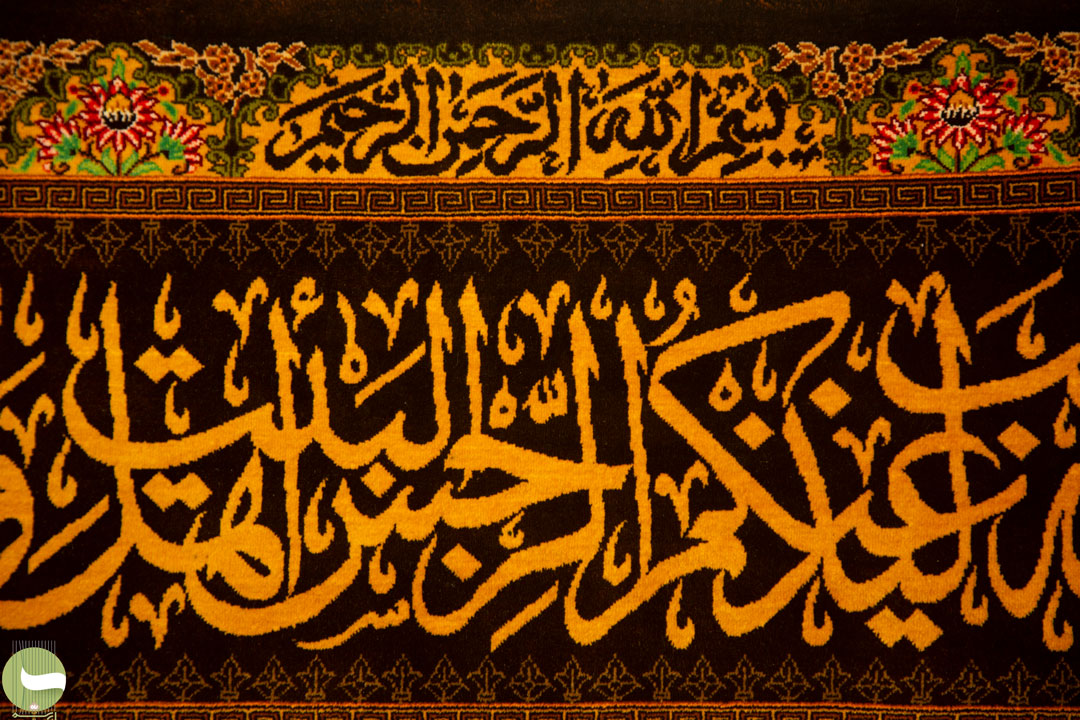 بِسْمِ اللَّهِ الرَّحْمَنِ الرَّحِيمِ
عَنْكُمُ الرِّجْسَ أَهْلَ الْبَيْتِ